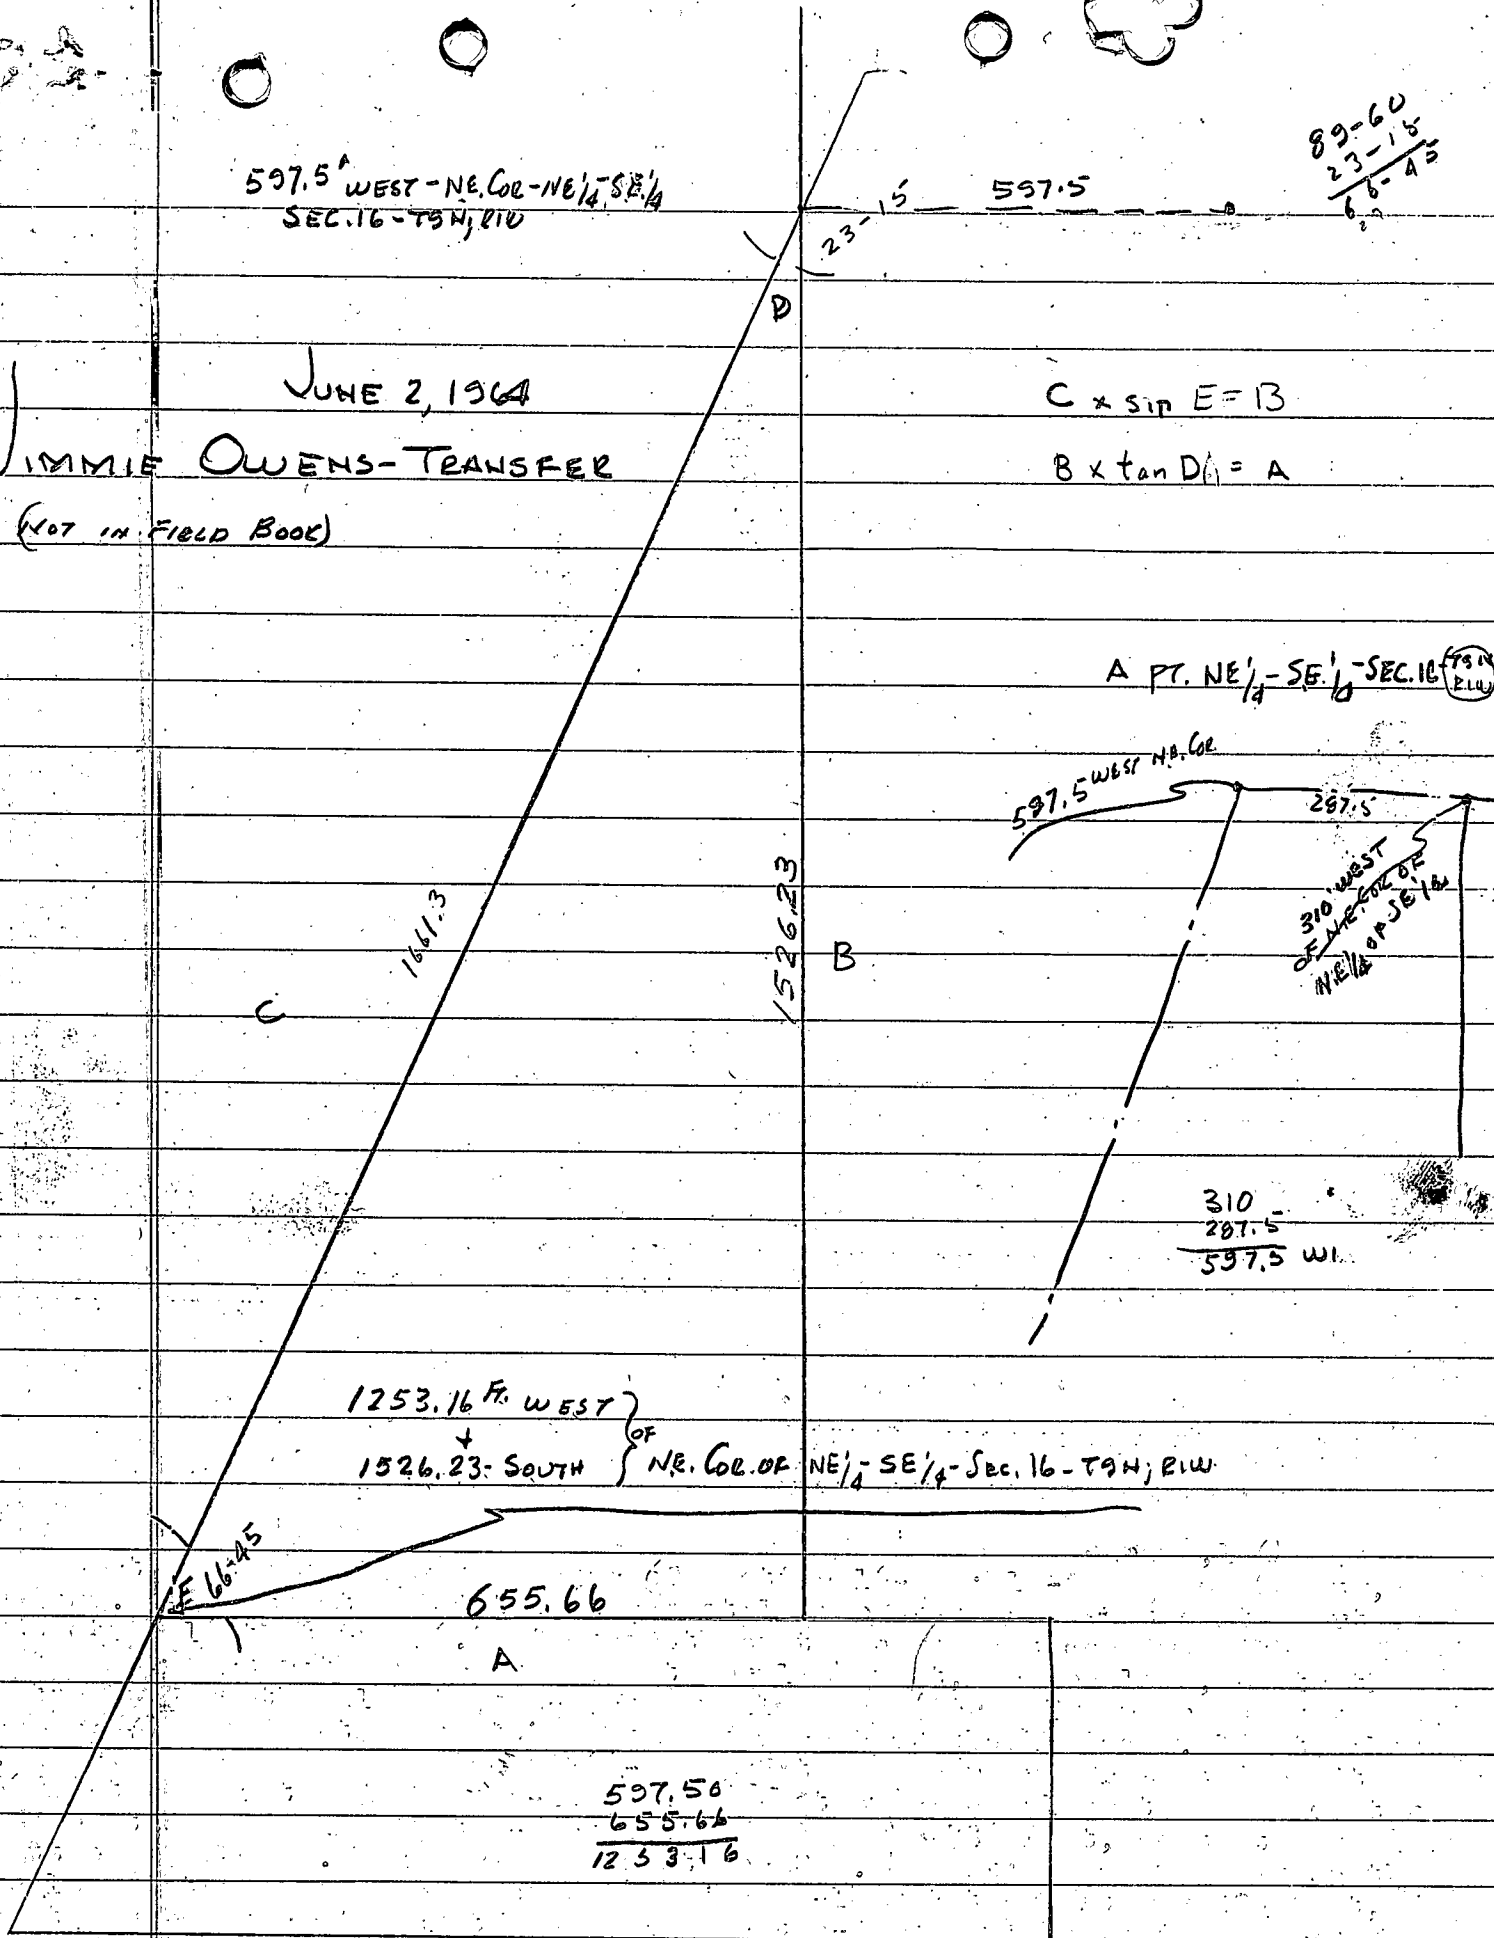 89-60
23-15
66-45
597.5 WEST-NE.COR-NE1/4-SE.1/4
SEC.16-T9N; R1W
597.5
23-15
D
JUNE 2, 1964
C x sin E = B
JIMMIE OWENS-TRANSFER
B x tan D = A
(NOT IN FIELD BOOK)
A PT. NE1/4-SE.1/4-SEC.16-T9N
R1W
597.5 WEST NE. COR
287.5
310' WEST
OF N.E. COR OF
N.E1/4 OF SE1/4
1661.3
1526.23
B
C
310
287.5
597.5 WI.
1253.16 FT. WEST
+
OF
1526.23-SOUTH
NE. COR. OF NE1/4-SE1/4-SEC.16-T9N; R1W.
E 66-45
655.66
A
597.50
655.66
1253.16